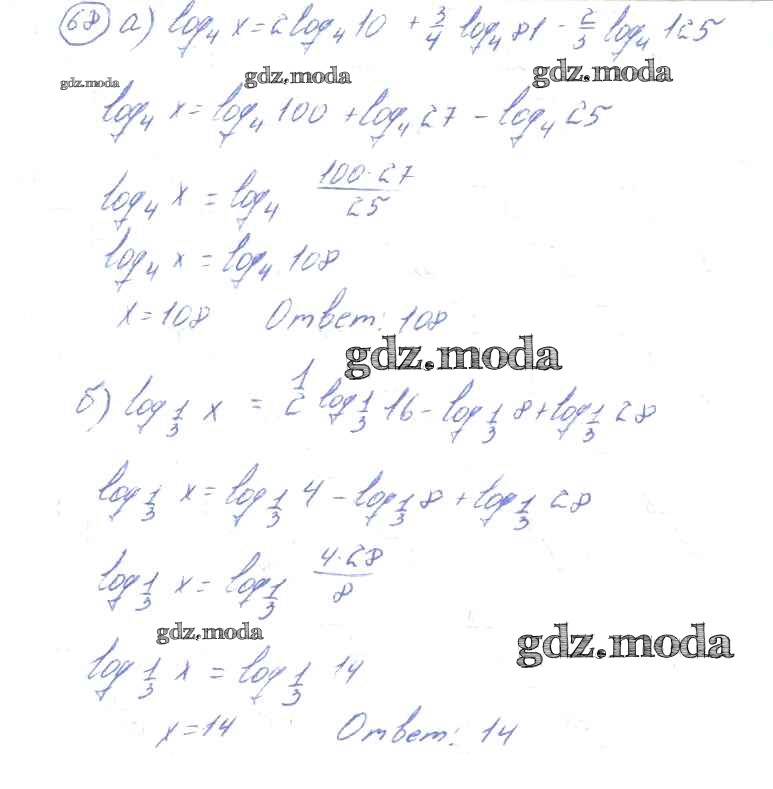 68 а) log₄ x = 2 log₄ 10 + 3/4 log₄ 81 - 2/3 log₄ 125
gdz.moda gdz.moda gdz.moda
log₄ x = log₄ 100 + log₄ 27 - log₄ 25
log₄ x = log₄ 100·27/25
log₄ x = log₄ 108
x = 108 Ответ: 108
gdz.moda
б) log₁/₃ x = 1/2 log₁/₃ 16 - log₁/₃ 8 + log₁/₃ 28
log₁/₃ x = log₁/₃ 4 - log₁/₃ 8 + log₁/₃ 28
log₁/₃ x = log₁/₃ 4·28/8
gdz.moda gdz.moda
log₁/₃ x = log₁/₃ 14
x = 14 Ответ: 14